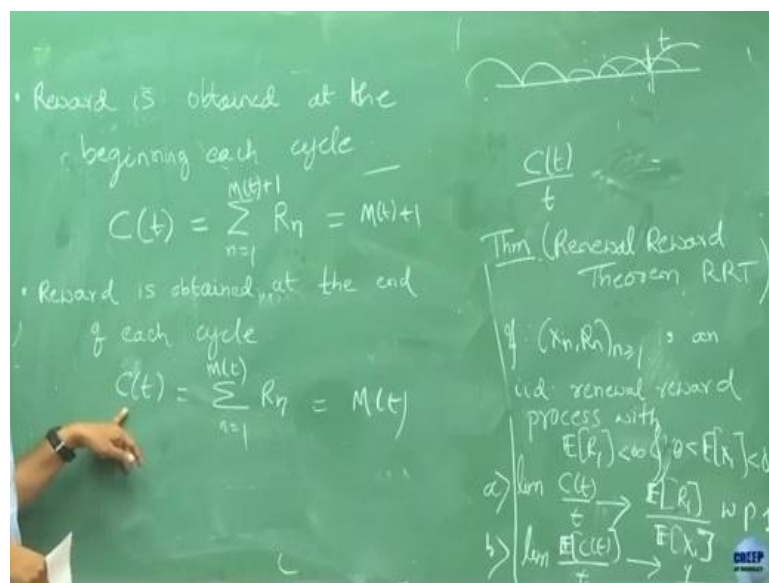 • Reward is obtained at the
beginning each cycle
C(t) = M(t)+1 ∑ n=1 Rn = M(t)+1
• Reward is obtained, at the end
of each cycle
C(t) = M(t) ∑ n=1 Rn = M(t)
t
C(t) / t =
Thm (Renewal Reward
Theorem RRT)
If (Xn, Rn)n≥1 is an
iid renewal reward
process with
E[R1] < ∞ & 0 < E[X1] < ∞
a) lim C(t) / t → E[R1] / E[X1] w p 1
b) lim E[C(t)] / t →
CDEEP
IIT BOMBAY